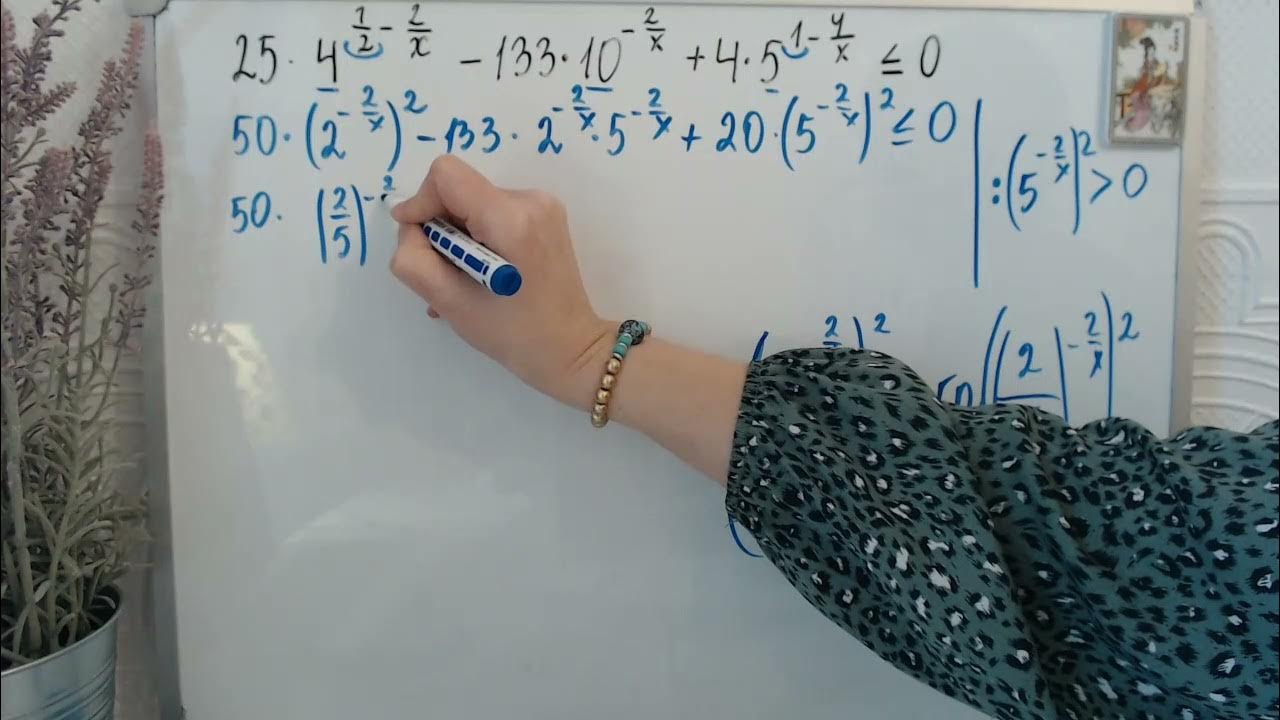 25 · 4^{1/2 - 2/x} - 133 · 10^{-2/x} + 4 · 5^{1 - 4/x} ≤ 0
50 · (2^{-2/x})^2 - 133 · 2^{-2/x} · 5^{-2/x} + 20 · (5^{-2/x})^2 ≤ 0 | : (5^{-2/x})^2 > 0
50 · (2/5)^{-2